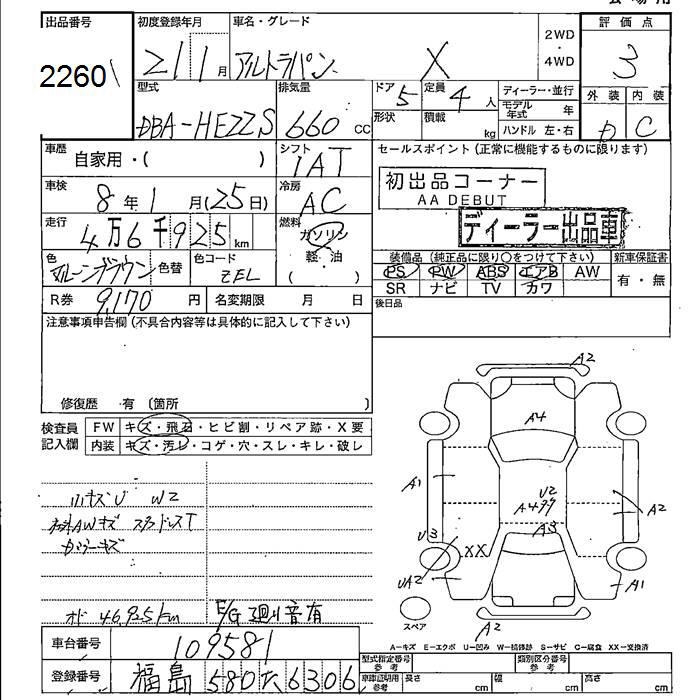 出品番号 初度登録年月 車名・グレード 評価点
2260 21 1月 アルトラパン X 2WD・4WD 3
型式 排気量 ドア 定員 ディーラー・並行 外装 内装
DBA-HE22S 660 CC 5 4人 モデル年式 年 D C
形状 積載 kg ハンドル 左・右
車歴 自家用・( ) シフト IAT セールスポイント (正常に機能するものに限ります)
車検 8年 1月 (25日) 冷房 AC 初出品コーナー
AA DEBUT
走行 4万6千925km 燃料 ガソリン ディーラー出品車
軽・油
( )
色 マルーンブラウン 色替 色コード ZEL 装備品 (純正品に限り○をつけて下さい) 新車保証書
PS PW ABS エアB AW 有・無
R券 9,170円 名変期限 月 日 SR ナビ TV カワ
注意事項申告欄 (不具合内容等は具体的に記入して下さい) 後日品
修復歴 有 (箇所 )
検査員 FW キズ・飛石・ヒビ割・リペア跡・X要
記入欄 内装 キズ・汚レ・コゲ・穴・スレ・キレ・破レ
A2
A4
A1 U2 A2
A499
U3 A3
XX
UA2 A1
スペア A2
小キズU W2
AWキズ スタッドレスT
カラーキズ
オド 46,925km E/G廻り音有
A−キズ E−エクボ U−凹み W−補修跡 S−サビ C−腐食 XX−交換済
車台番号 109581 型式指定番号 参考 類別区分番号 参考
登録番号 福島 580 6306 車庫証明用 参考 長さ cm 幅 cm 高さ cm